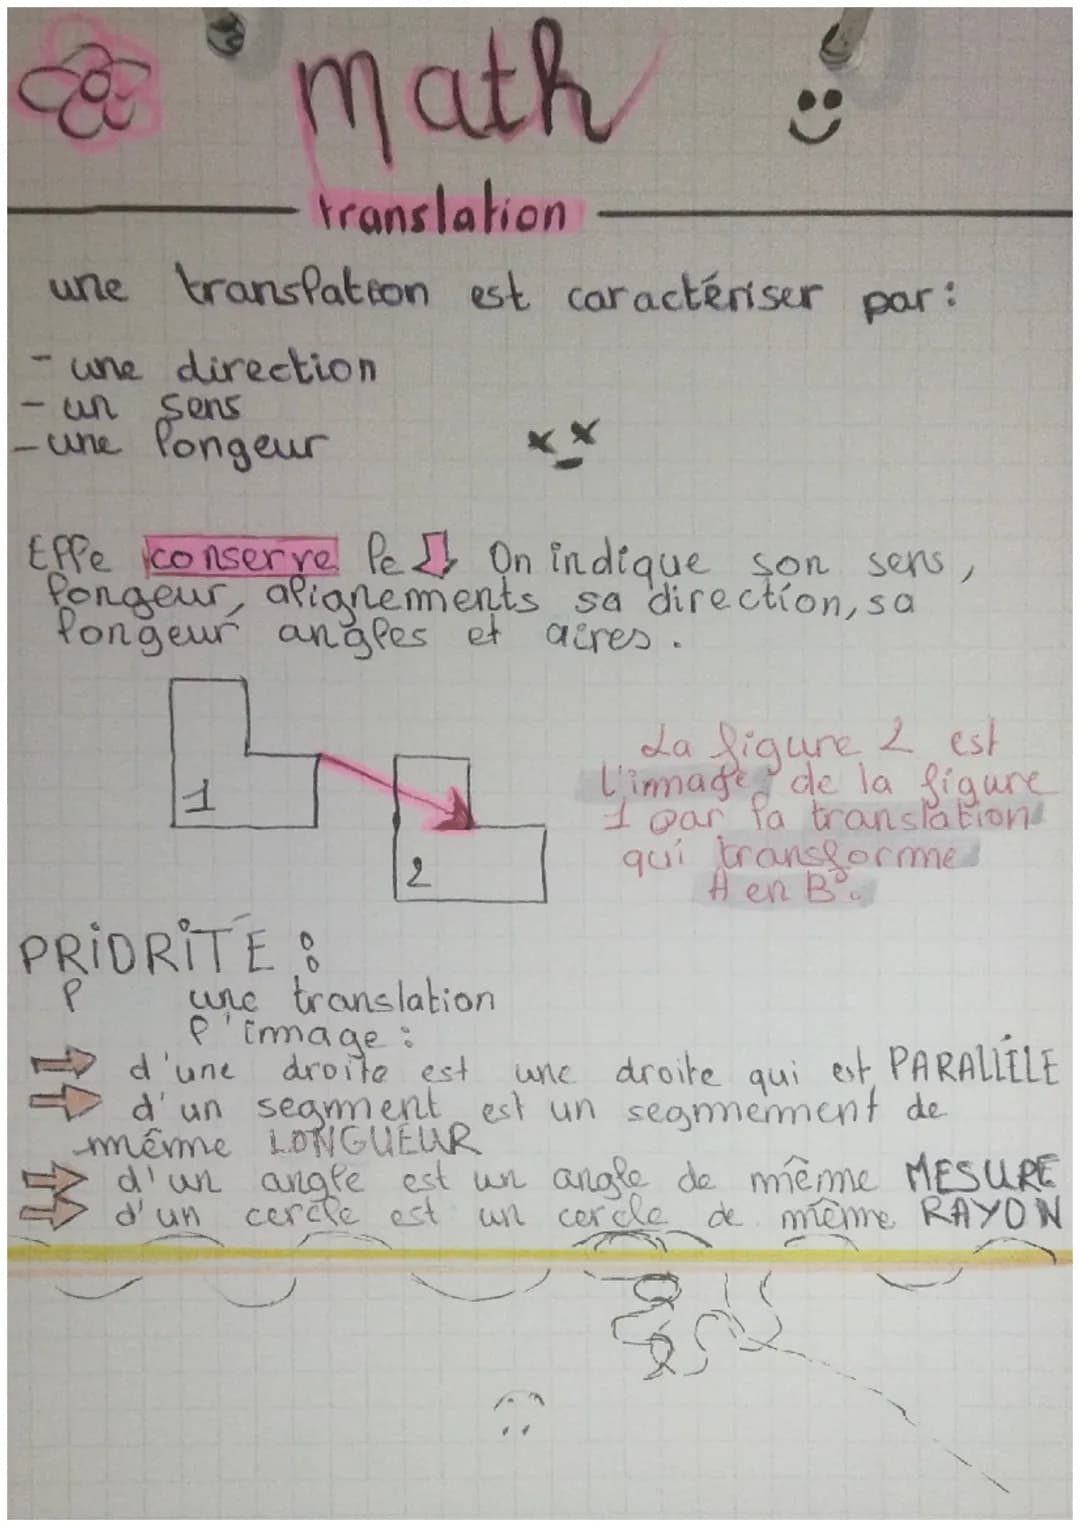 math
translation
une translation est caractériser par:
- une direction
- un sens
- une longeur
Elle conserve le On indique son sens,
longeur, alignements sa direction, sa
longeur angles et aires.
La figure 2 est
l'immage de la figure
1 par la translation
qui transforme
A en B.
1
2
PRIORITÉ :
une translation
l'immage :
d'une droite est une droite qui est PARALLÉLE
d'un segmment est un segmnemment de
même LONGUEUR
d'un angle est un angle de même MESURE
d'un cercle est un cercle de même RAYON